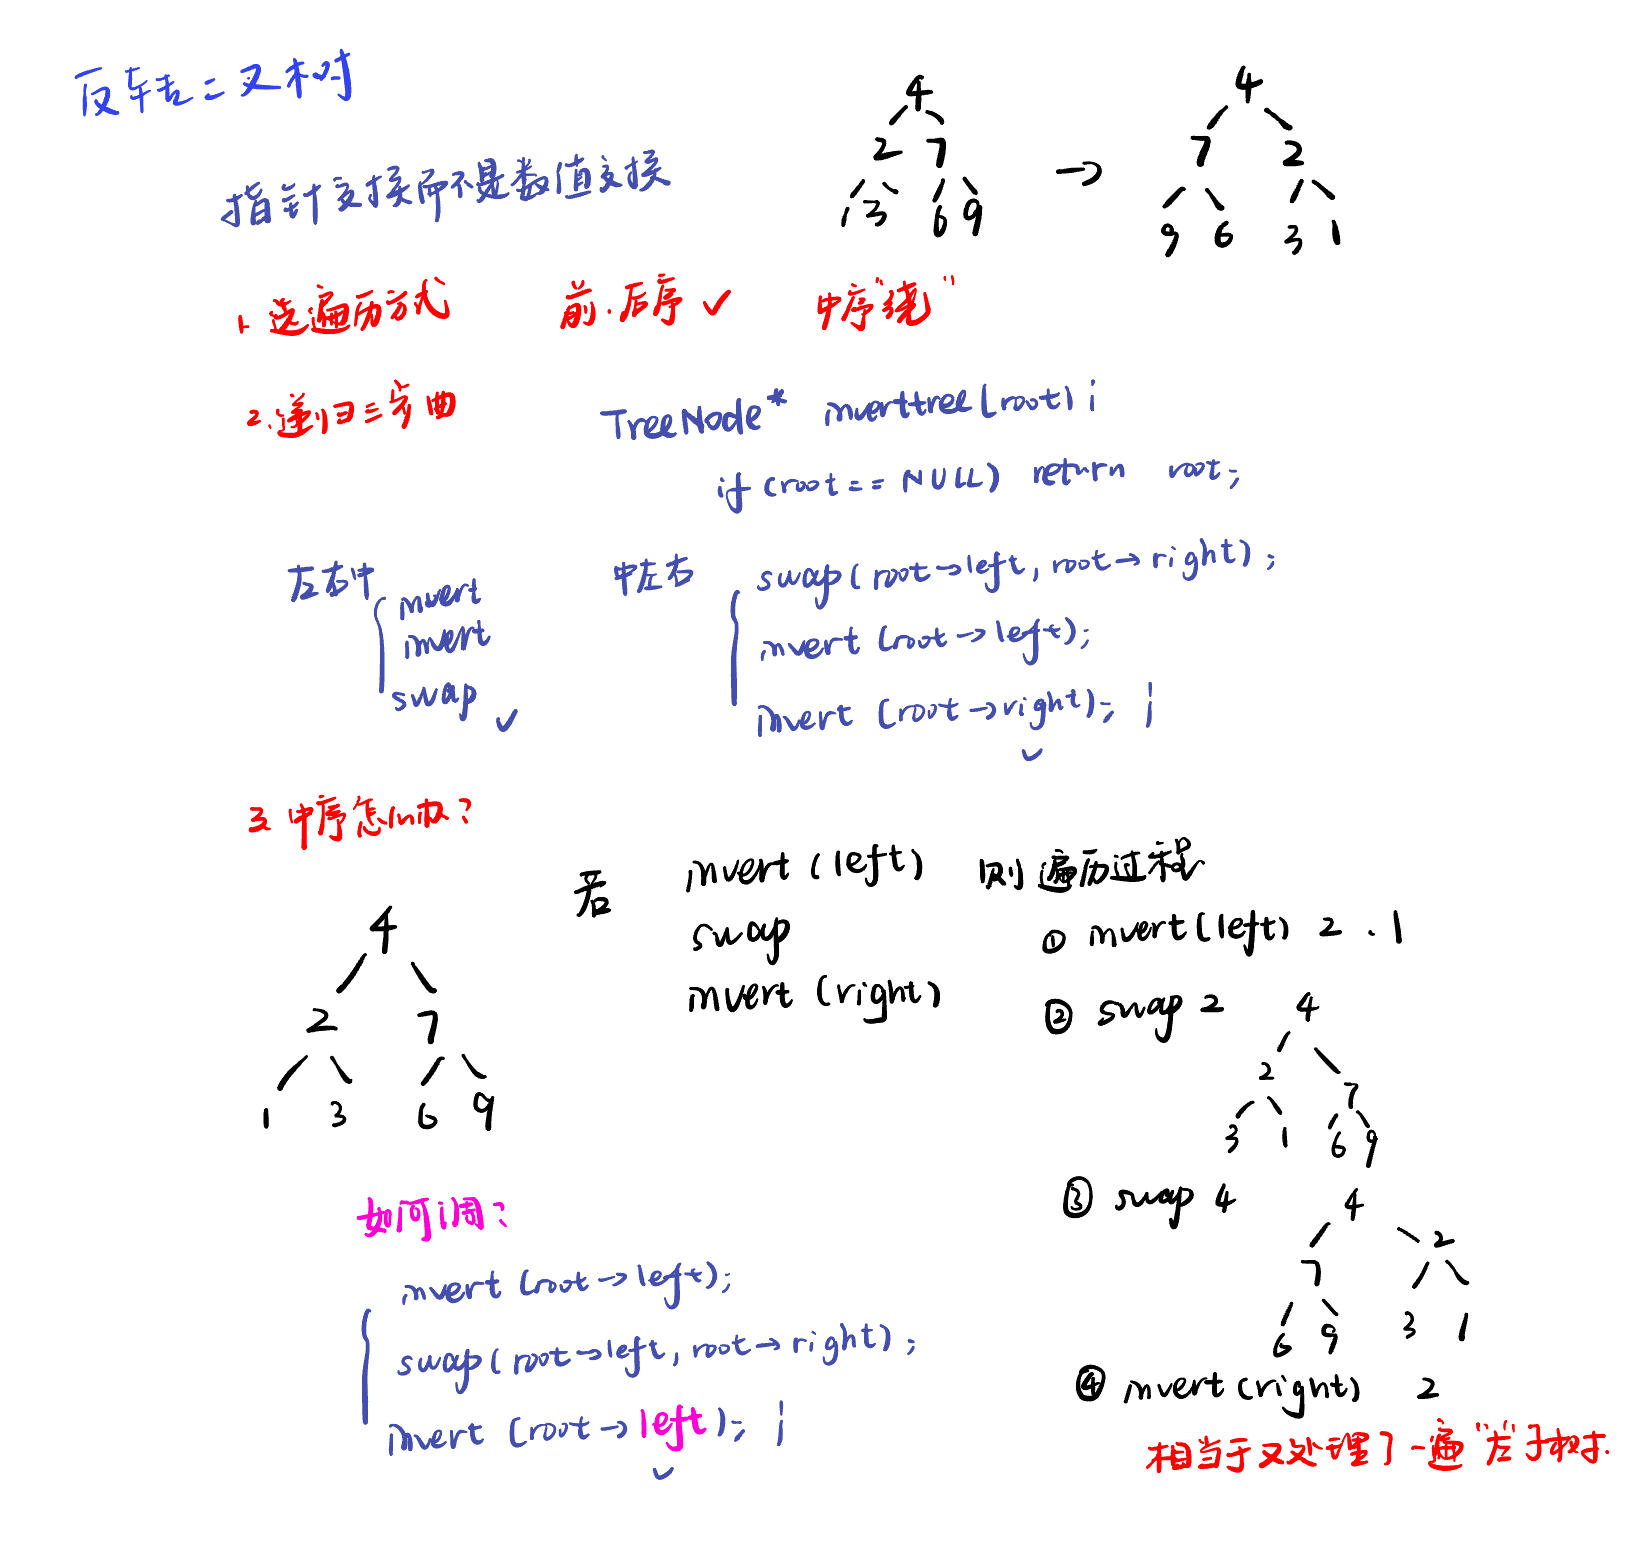 反转二叉树
指针交换而不是数值交换
4
2 7
1 3 6 9
→
4
7 2
9 6 3 1
1. 选遍历方式 前.后序 ✓ 中序"绕"
2. 递归三步曲 TreeNode* inverttree(root) {
if (root == NULL) return root;
左右中
invert
invert
swap ✓
中左右
swap(root→left, root→right);
invert (root→left);
invert (root→right); }
✓
3. 中序怎么办?
4
2 7
1 3 6 9
若
invert (left)
swap
invert (right)
则遍历过程
① invert(left) 2 . 1
② swap 2
4
2
7
3 1 6 9
③ swap 4
4
7 2
6 9 3 1
④ invert(right) 2
相当于又处理了一遍"左"子树.
如何调?
invert (root→left);
swap(root→left, root→right);
invert (root→left); }
✓